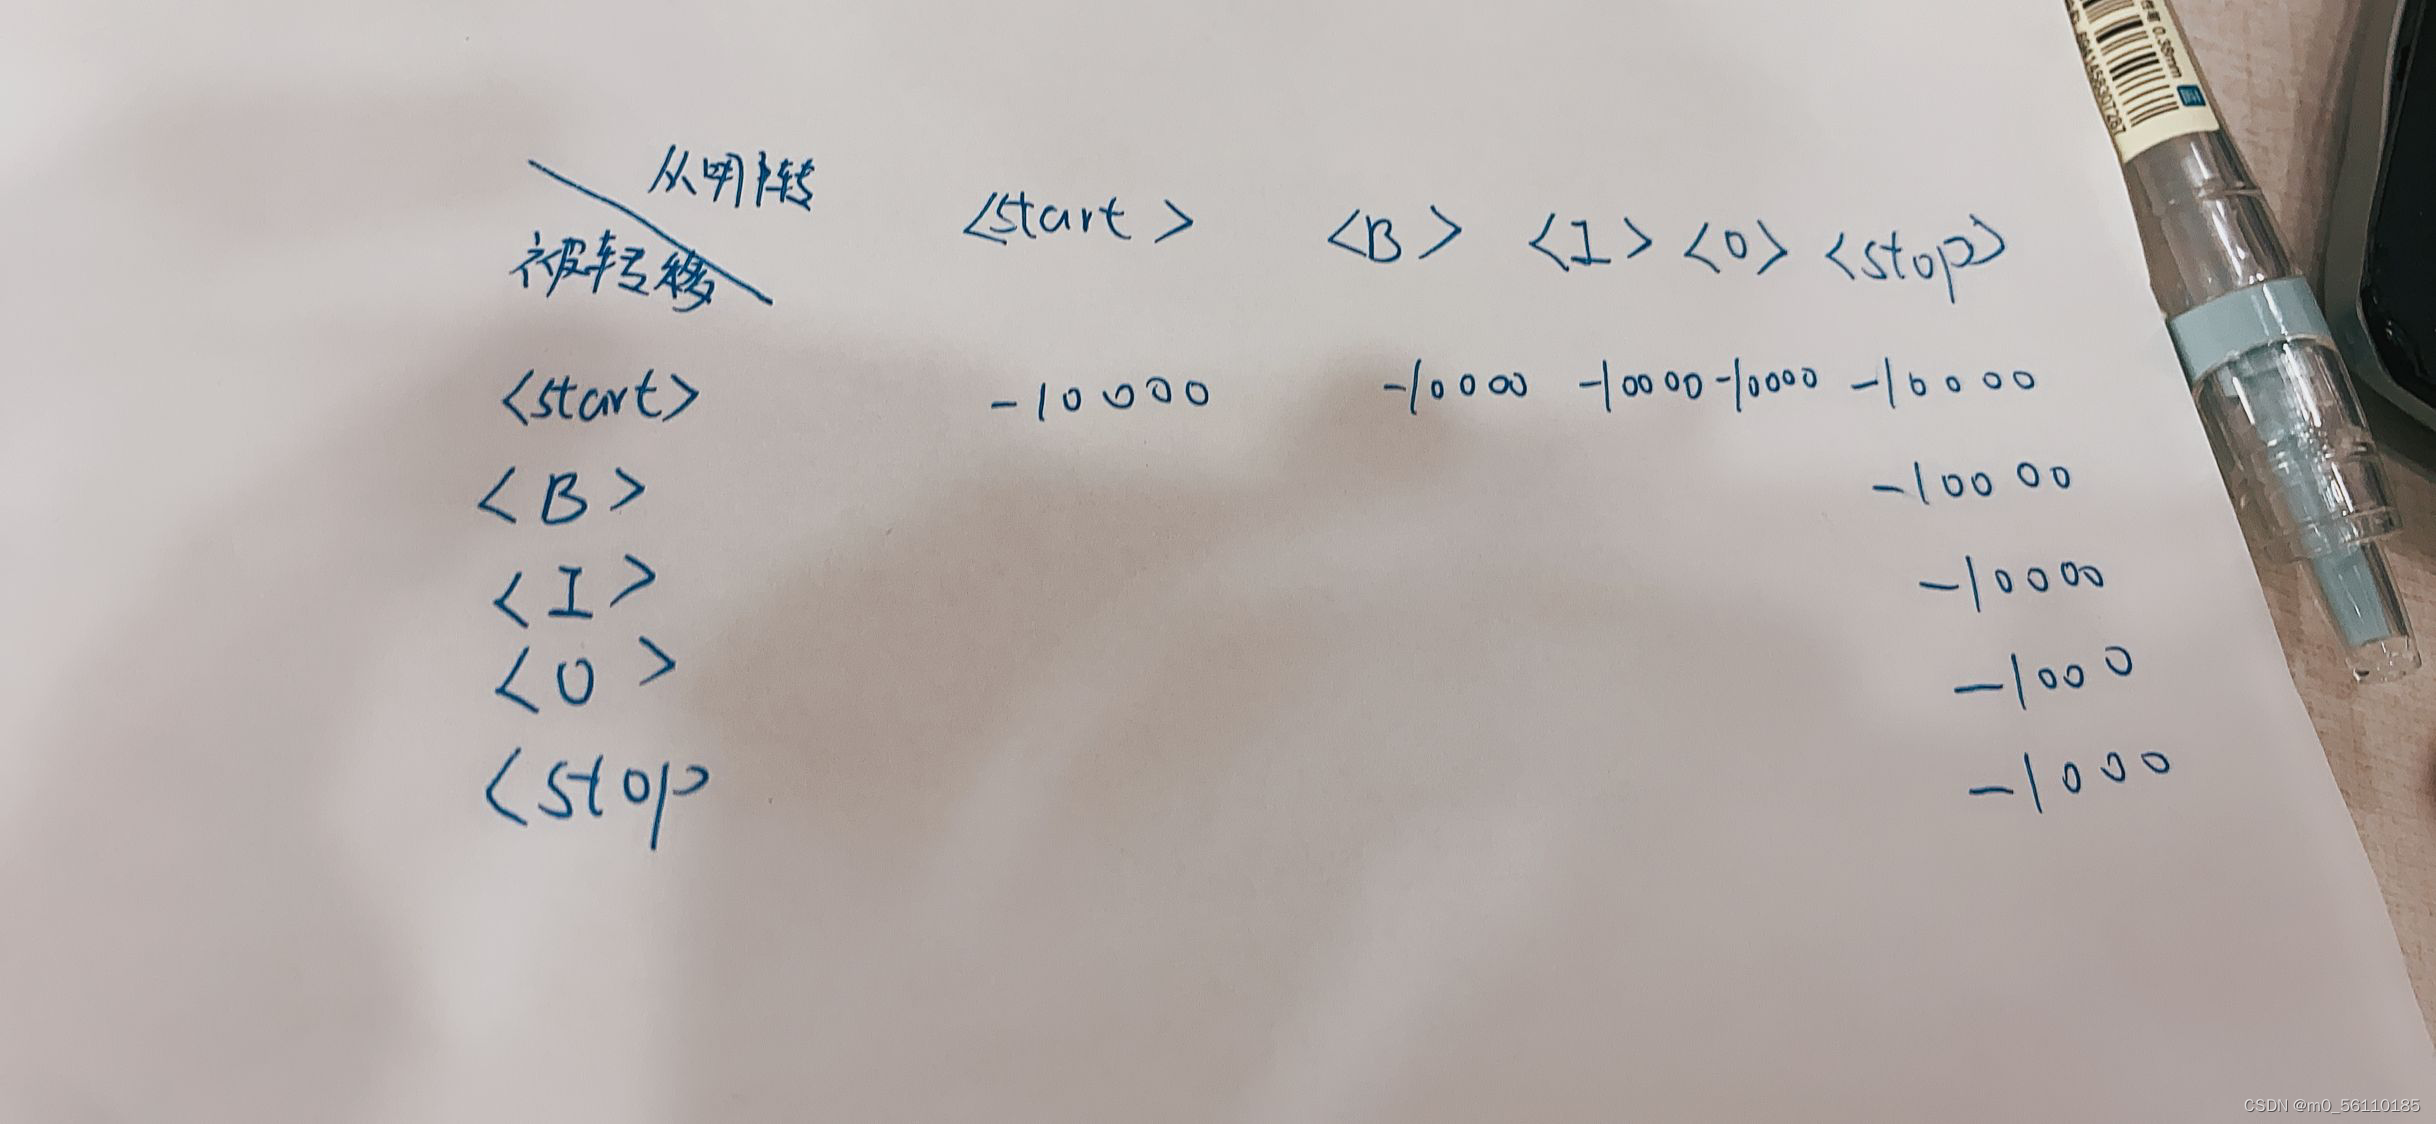 从哪转
被转移
<start> <B> <I> <O> <stop>
<start> -10000 -10000 -10000 -10000 -10000
<B> -10000
<I> -10000
<O> -1000
<stop -1000
0.38mm
6941458307287
CSDN @m0_56110185